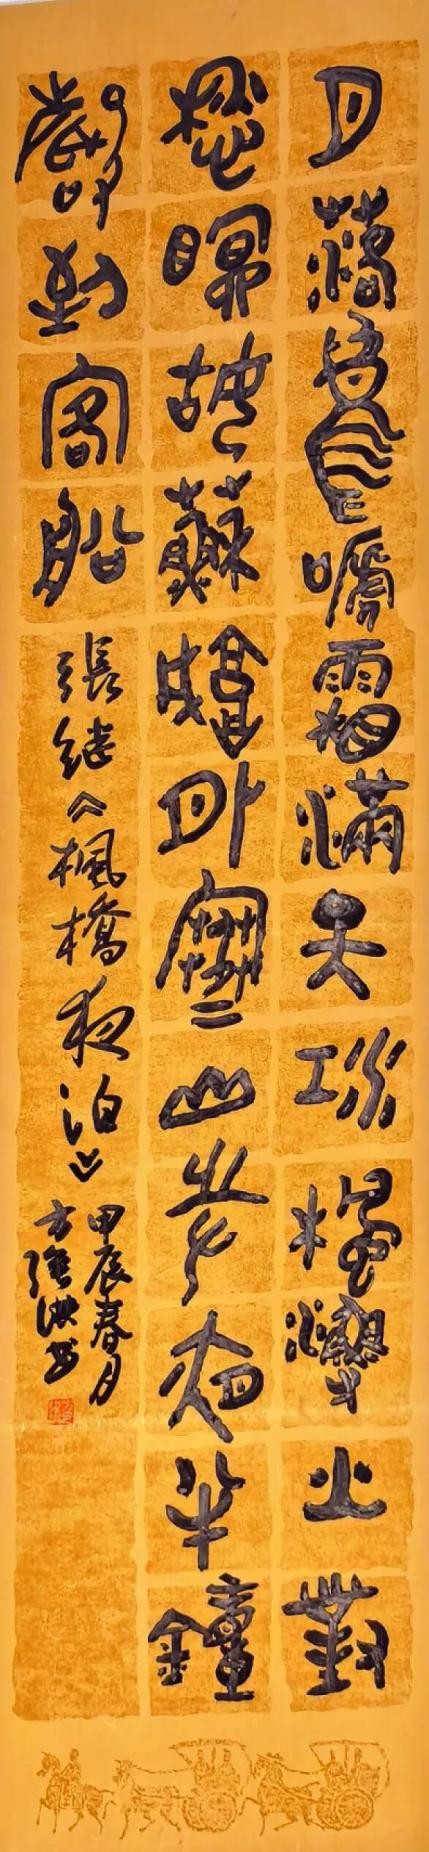 月落烏啼霜滿天江楓漁火對
愁眠姑蘇城外寒山寺夜半鐘
聲到客船張继《楓橋夜泊》
甲辰春月
方书